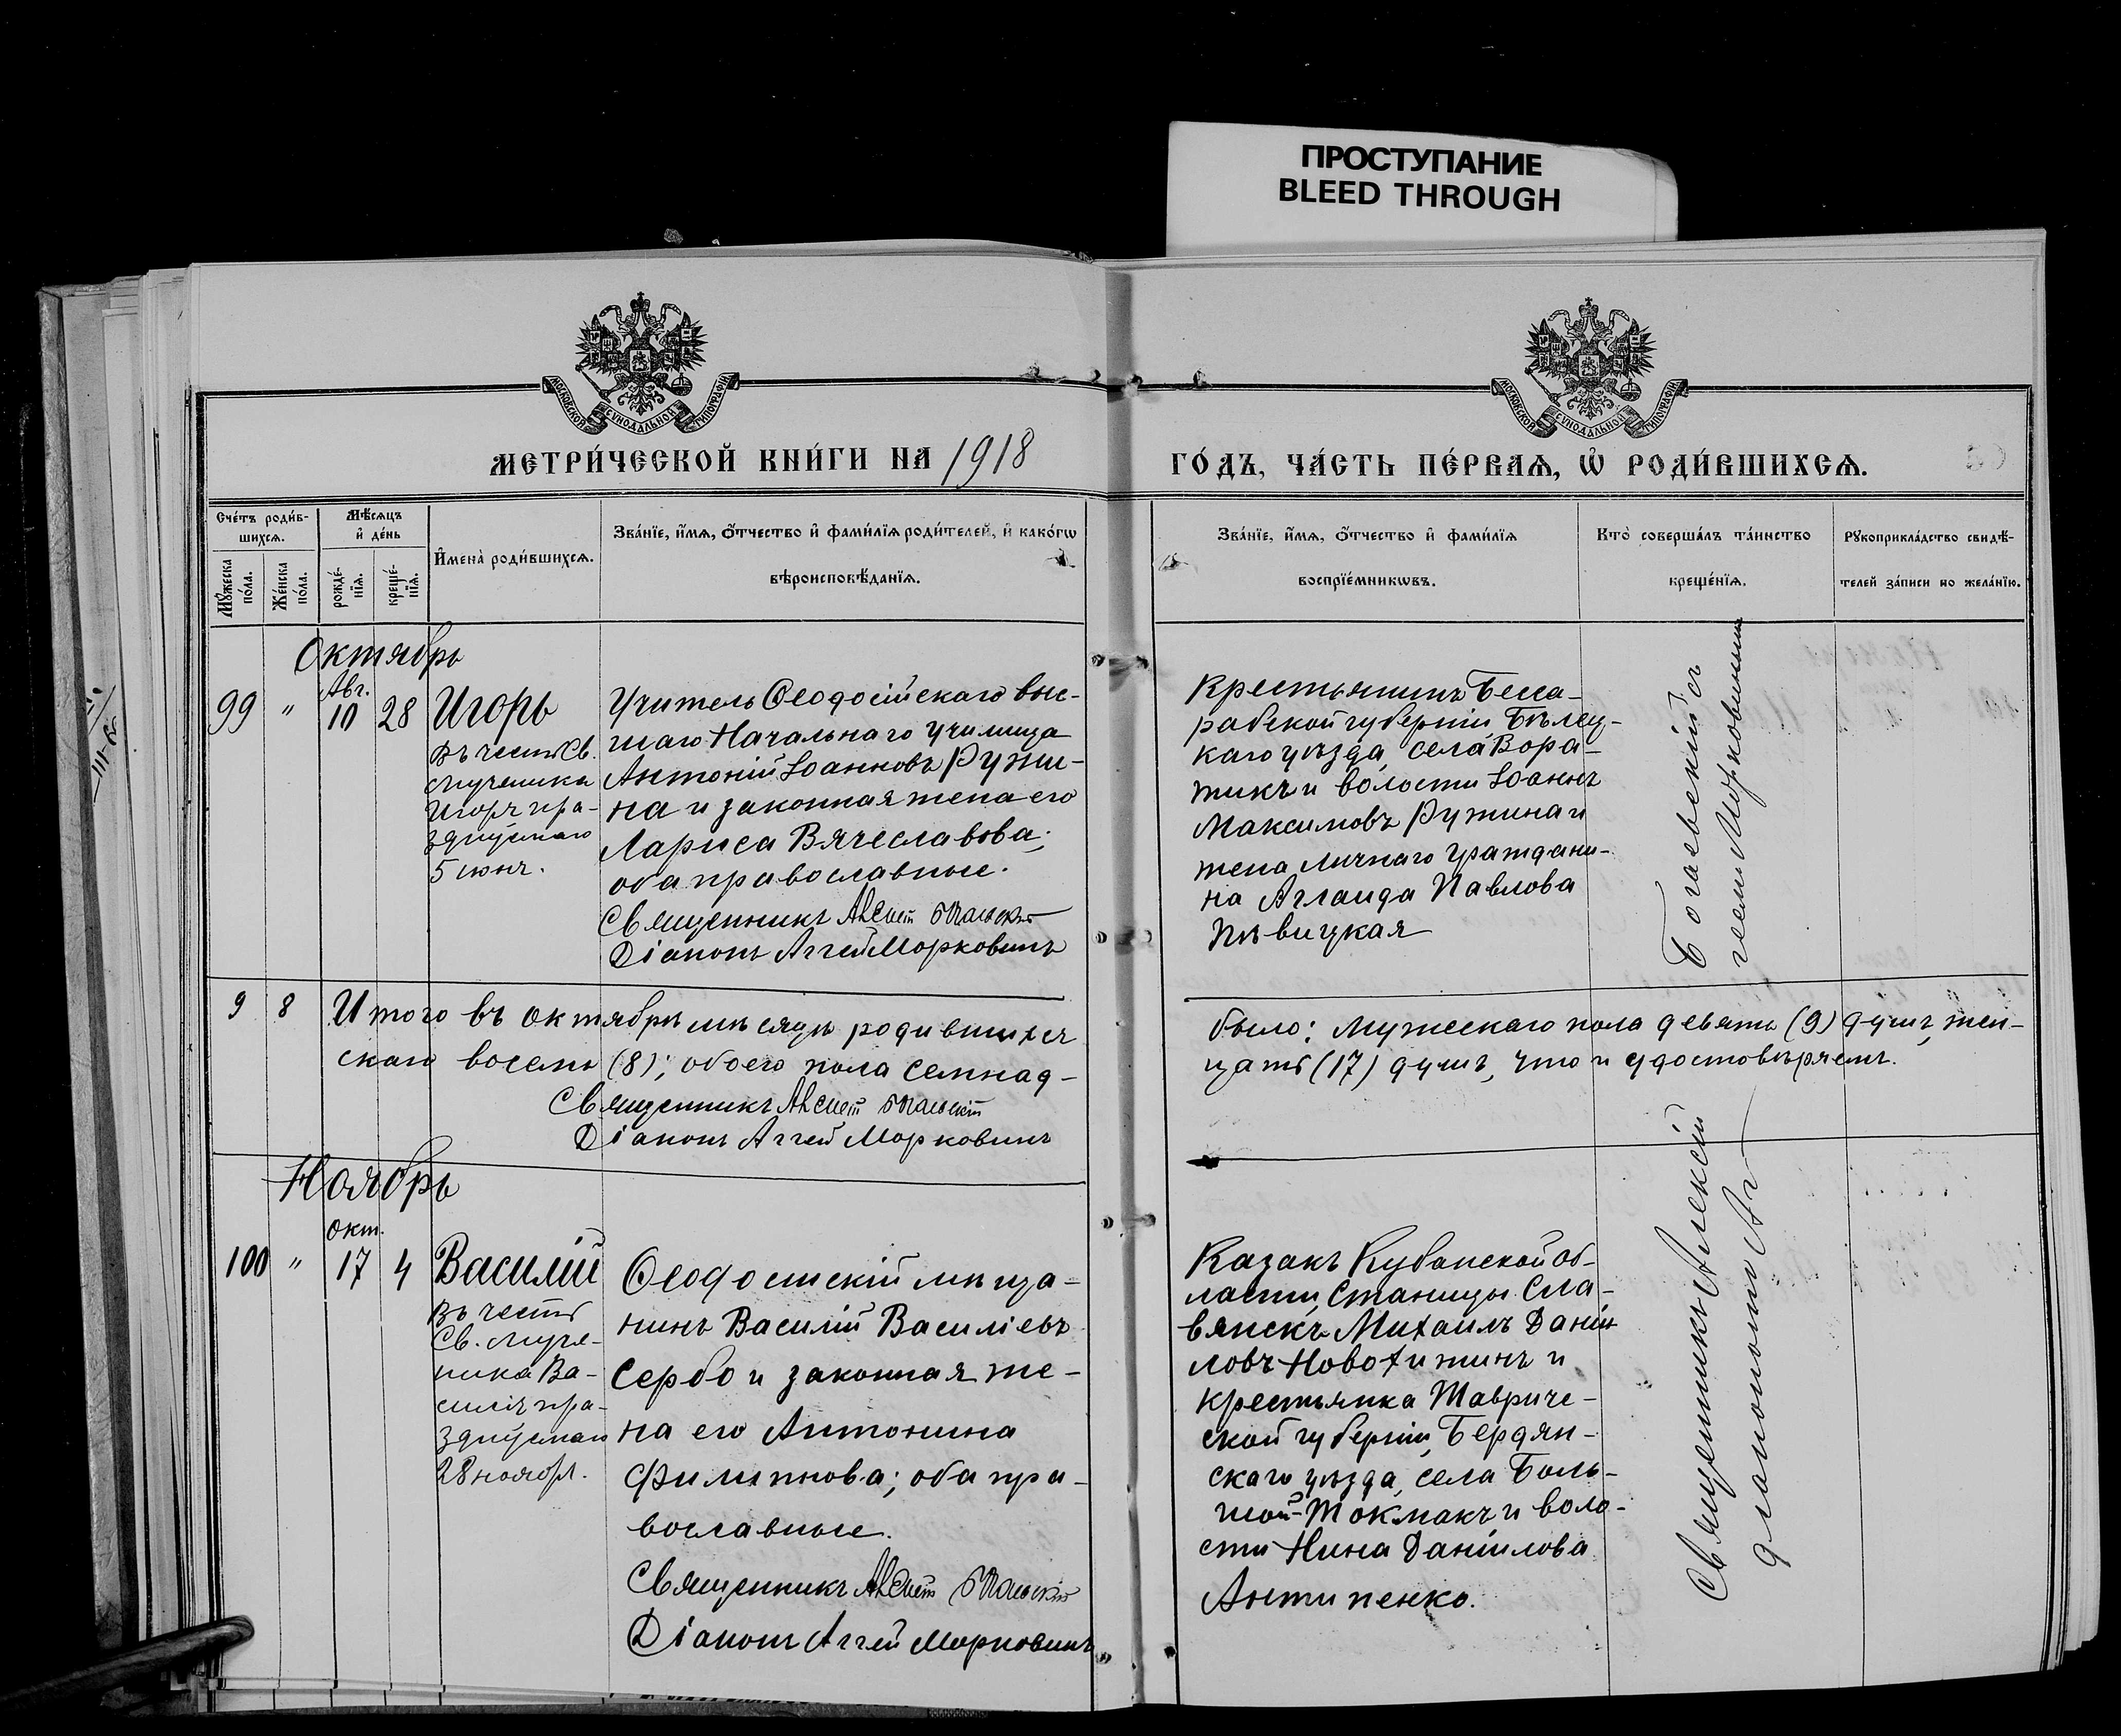 ПРОСТУПАНИЕ
BLEED THROUGH
МОСКОВСКОЙ СУНОДАЛЬНОЙ ТИПОГРАФІИ
МОСКОВСКОЙ СУНОДАЛЬНОЙ ТИПОГРАФІИ
МЕТРИ́ЧЕСКОЙ КНИ́ГИ НА 1918
ГО́ДЪ, ЧА́СТЬ ПЕ́РВАѦ, Ѡ҆ РОДИ́ВШИХСѦ.
Сче́тъ роди́в-
шихсѧ.
Мꙋ́жеска по́ла.
Же́нска по́ла.
Мѣ́сѧцъ и҆ де́нь
рожде́-нїѧ.
креще́-нїѧ.
И҆мена̀ роди́вшихсѧ.
Зва́нїе, и҆́мѧ, ѻ҆́тчество и҆ фами́лїѧ роди́телей, и҆ како́гѡ
вѣроисповѣ́данїѧ.
Зва́нїе, и҆́мѧ, ѻ҆́тчество и҆ фами́лїѧ
воспрїе́мникѡвъ.
Кто̀ соверша́лъ та́инство
креще́нїѧ.
Рꙋкоприкла́дство свидѣ́-
телей за́писи по жела́нїю.
Октябрь
99 " Авг. 10 28 Игорь
въ честь Св.
мученика
Игоря пра-
зднуемаго
5 іюня.
Учитель Ѳеодосійскаго выс-
шаго Начальнаго училища
Антоній Іоанновъ Ружи-
на и законная жена его
Лариса Вячеславова;
оба православные.
Священникъ Алексѣй Богаевскій
Діаконъ Аггей Морковинъ
Крестьянинъ Бесса-
рабской губерніи Бѣлец-
каго уѣзда, села Вора-
тикъ и волости Іоаннъ
Максимовъ Ружина и
жена личнаго граждани-
на Аглаида Павлова
Пѣвицкая
Богаевскій съ
геемъ Морковинымъ
9 8 Итого въ октябрѣ мѣсяцѣ родившихся
скаго восемь (8); обоего пола семнад-
Священникъ Алексѣй Богаевскій
Діаконъ Аггей Морковинъ
было: мужескаго пола девять (9) душъ, жен-
цать (17) душъ, что и удостовѣряемъ.
Ноябрь
100 " Окт. 17 4 Василій
въ честь
Св. муче-
ника Ва-
силія пра-
зднуемаго
28 ноября.
Ѳеодосійскій мѣща-
нинъ Василій Василіевъ
Сербо и законная же-
на его Антонина
Филиппова; оба пра-
вославные.
Священникъ Алексѣй Богаевскій
Діаконъ Аггей Морковинъ
Казакъ Кубанской об-
ласти, станицы Сла-
вянскъ Михаилъ Даніи-
ловъ Новохижинъ и
крестьянка Тавриче-
ской губерніи, Бердян-
скаго уѣзда, села Боль-
шой-Токмакъ и воло-
сти Нина Даніилова
Антипенко.
Священникъ Алексѣй
діакономъ Аг-